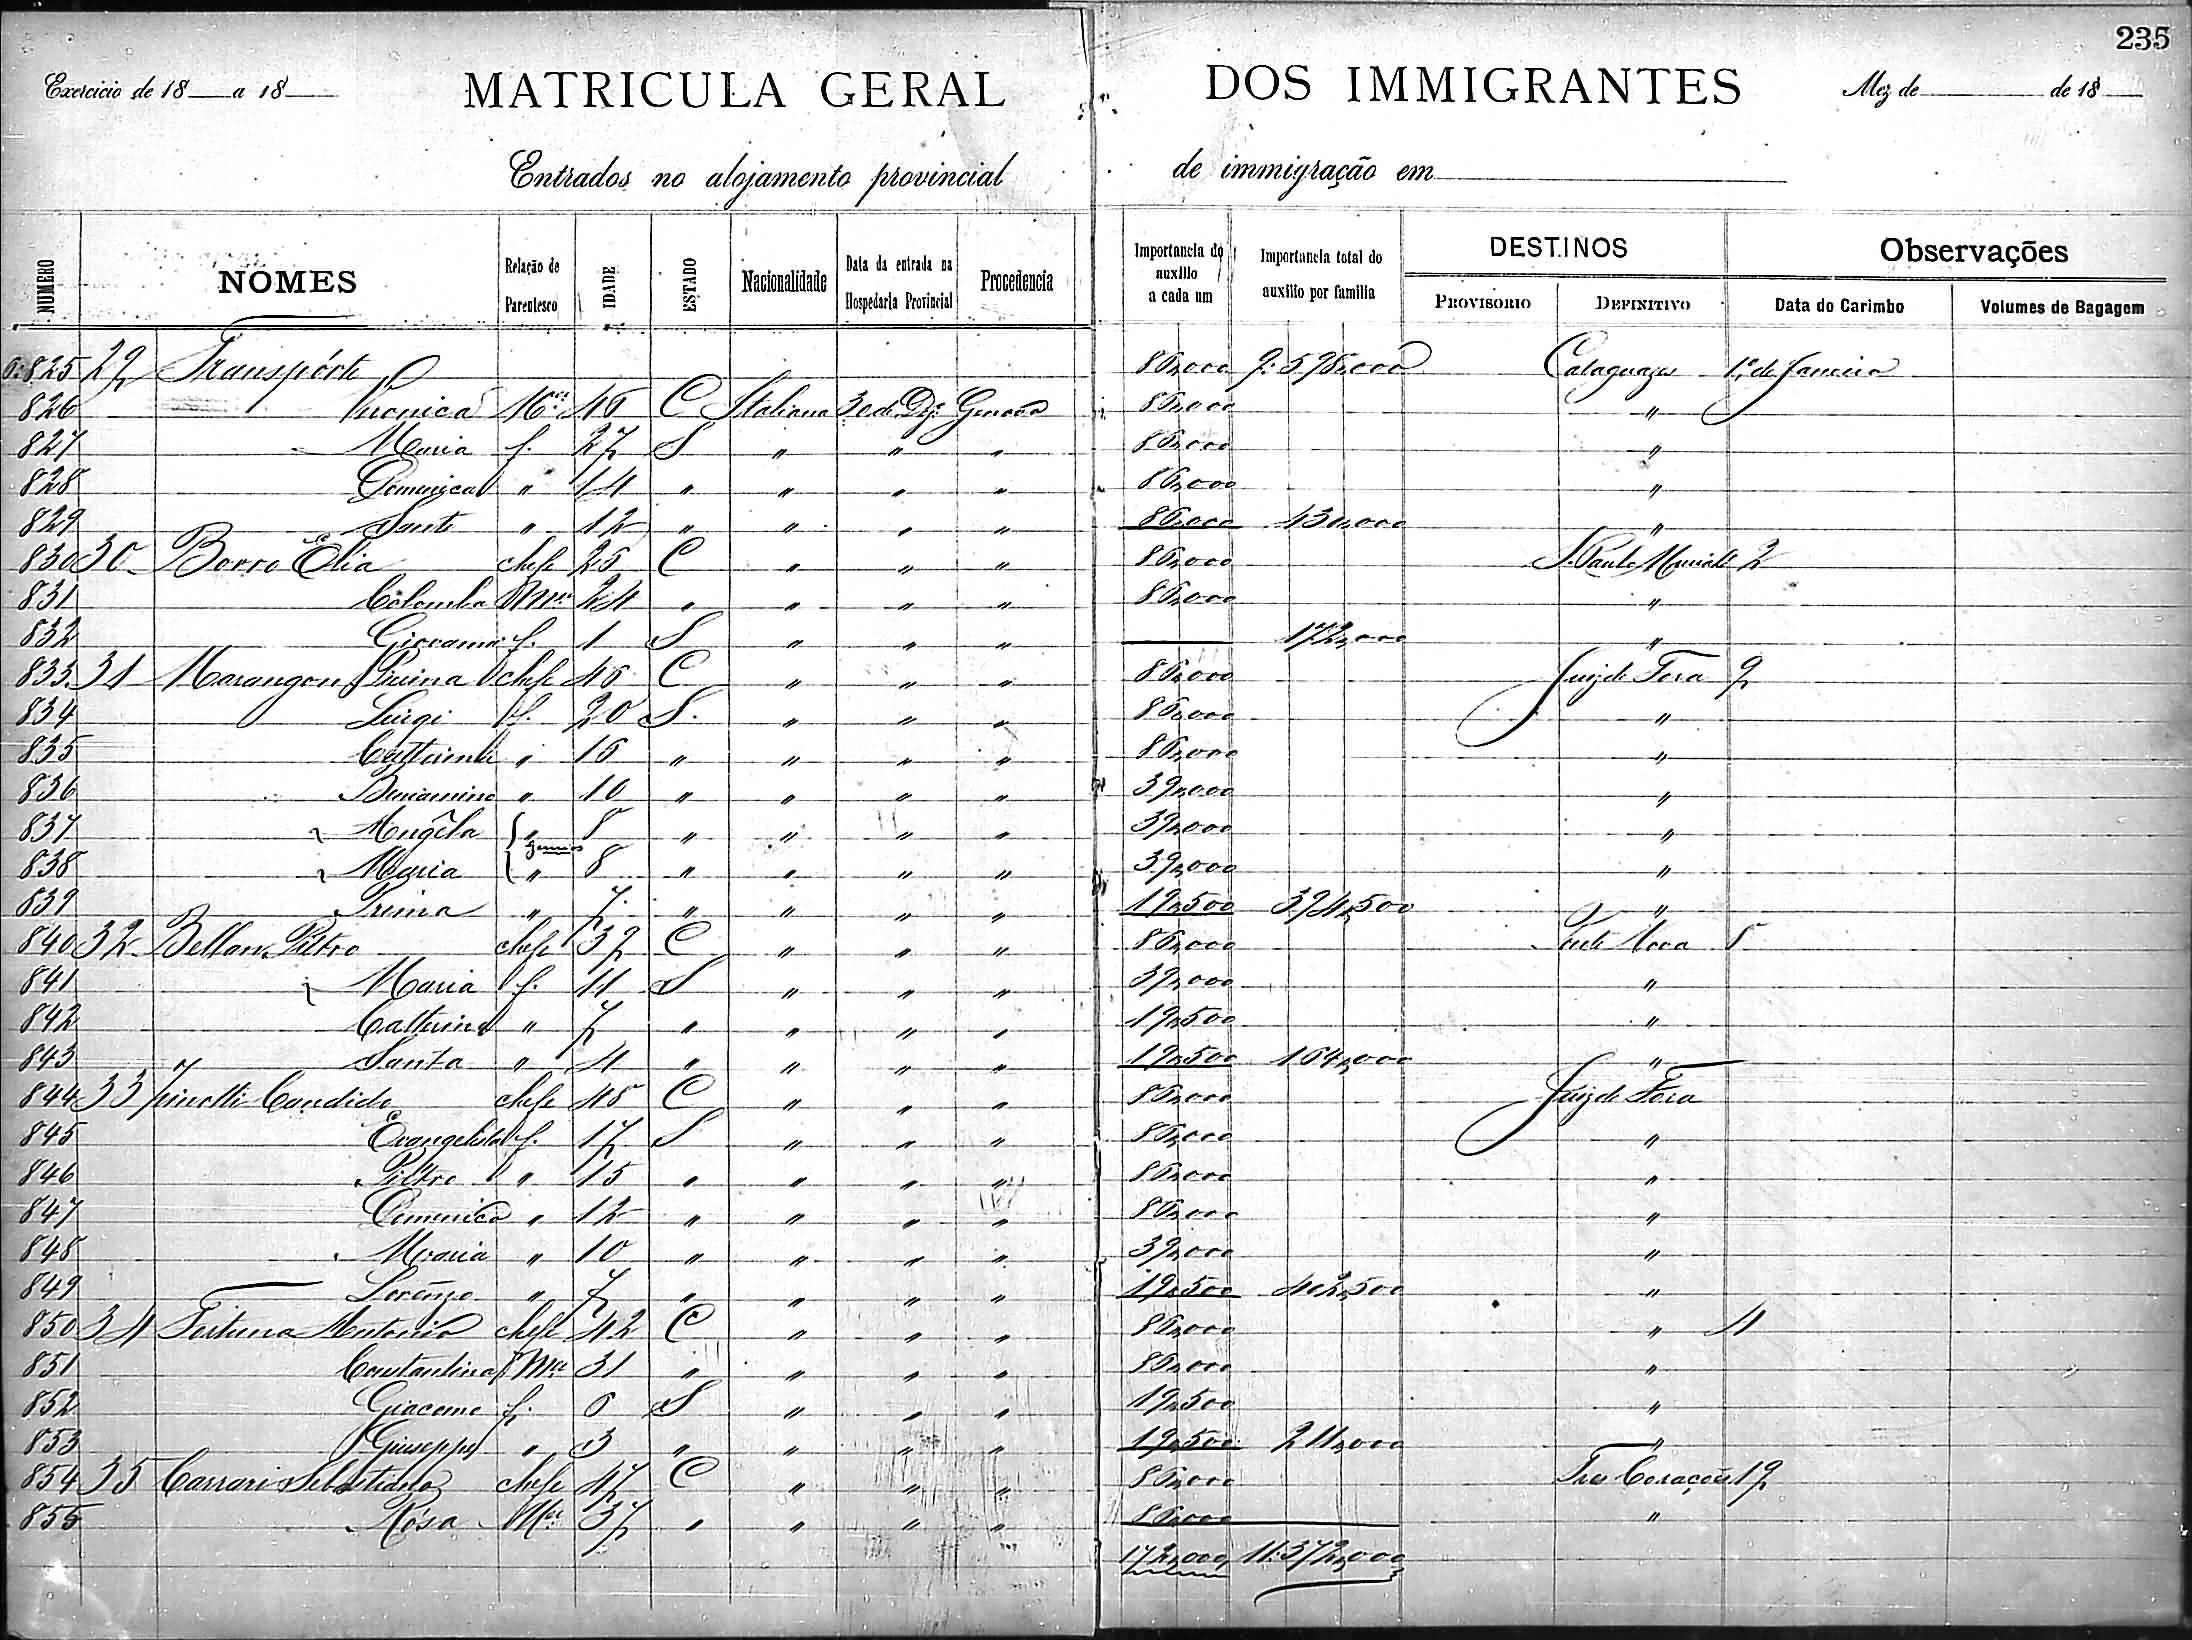 235
Exercicio de 18 a 18 MATRICULA GERAL DOS IMMIGRANTES Mez de de 18
Entrados no alojamento provincial de immigração em
NUMERO NOMES Relação de Parentesco IDADE ESTADO Nacionalidade Data da entrada na Hospedaria Provincial Procedencia Importancia do auxilio a cada um Importancia total do auxilio por familia DESTINOS Observações
PROVISORIO DEFINITIVO Data do Carimbo Volumes de Bagagem
825 29 Transpórte 86,000 9:598,000 Cataguazes 1º de Janeiro
826 Veronica Mer 46 C Italiana 30 de Dez: Genova 86,000 "
827 Maria f. 27 S " " " 86,000 "
828 Domenica " 14 " " " " 86,000 "
829 Sante " 12 " " " " 86,000 430,000 "
830 30 Borro Elia chefe 26 C " " " 86,000 S. Paulo Muriahé 2
831 Colomba Mer 24 " " " " 86,000 "
832 Giovanni f. 1 S " " " 172,000 "
833 31 Marangon chefe 46 C " " " 86,000 Juiz de Fora 9
834 Luigi f. 20 S. " " " 86,000 "
835 " 16 " " " " 86,000 "
836 Beniamino " 10 " " " " 39,000 "
837 Angêla " 8 " " " " 39,000 "
gemeos
838 Maria " 8 " " " " 39,000 "
839 Prima " 7 " " " " 19,500 394,500 "
840 32 Bellan Pietro chefe 39 C " " " 86,000 Ponte Nova 8
841 Maria f. 11 S " " " 39,000 "
842 Catterina " 7 " " " " 19,500 "
843 Santa " 4 " " " " 19,500 164,000 "
844 33 Candido chefe 45 C " " " 86,000 Juiz de Fora
845 Evangelista f. 17 S " " " 86,000 "
846 Pietro " 15 " " " " 86,000 "
847 Domenica " 12 " " " " 86,000 "
848 Maria " 10 " " " " 39,000 "
849 Lorenzo " 7 " " " " 19,500 402,500 "
850 34 Fortuna Antonio chefe 42 C " " " 86,000 " 4
851 Constantina Mer 31 " " " " 86,000 "
852 Giacomo f. 6 S " " " 19,500 "
853 Giuseppe " 3 " " " " 19,500 211,000 "
854 35 Carrari Sebastiano chefe 47 C " " " 86,000 Tres Corações 19
855 Rósa Mer 37 " " " " 86,000 "
172,000 11:372,000